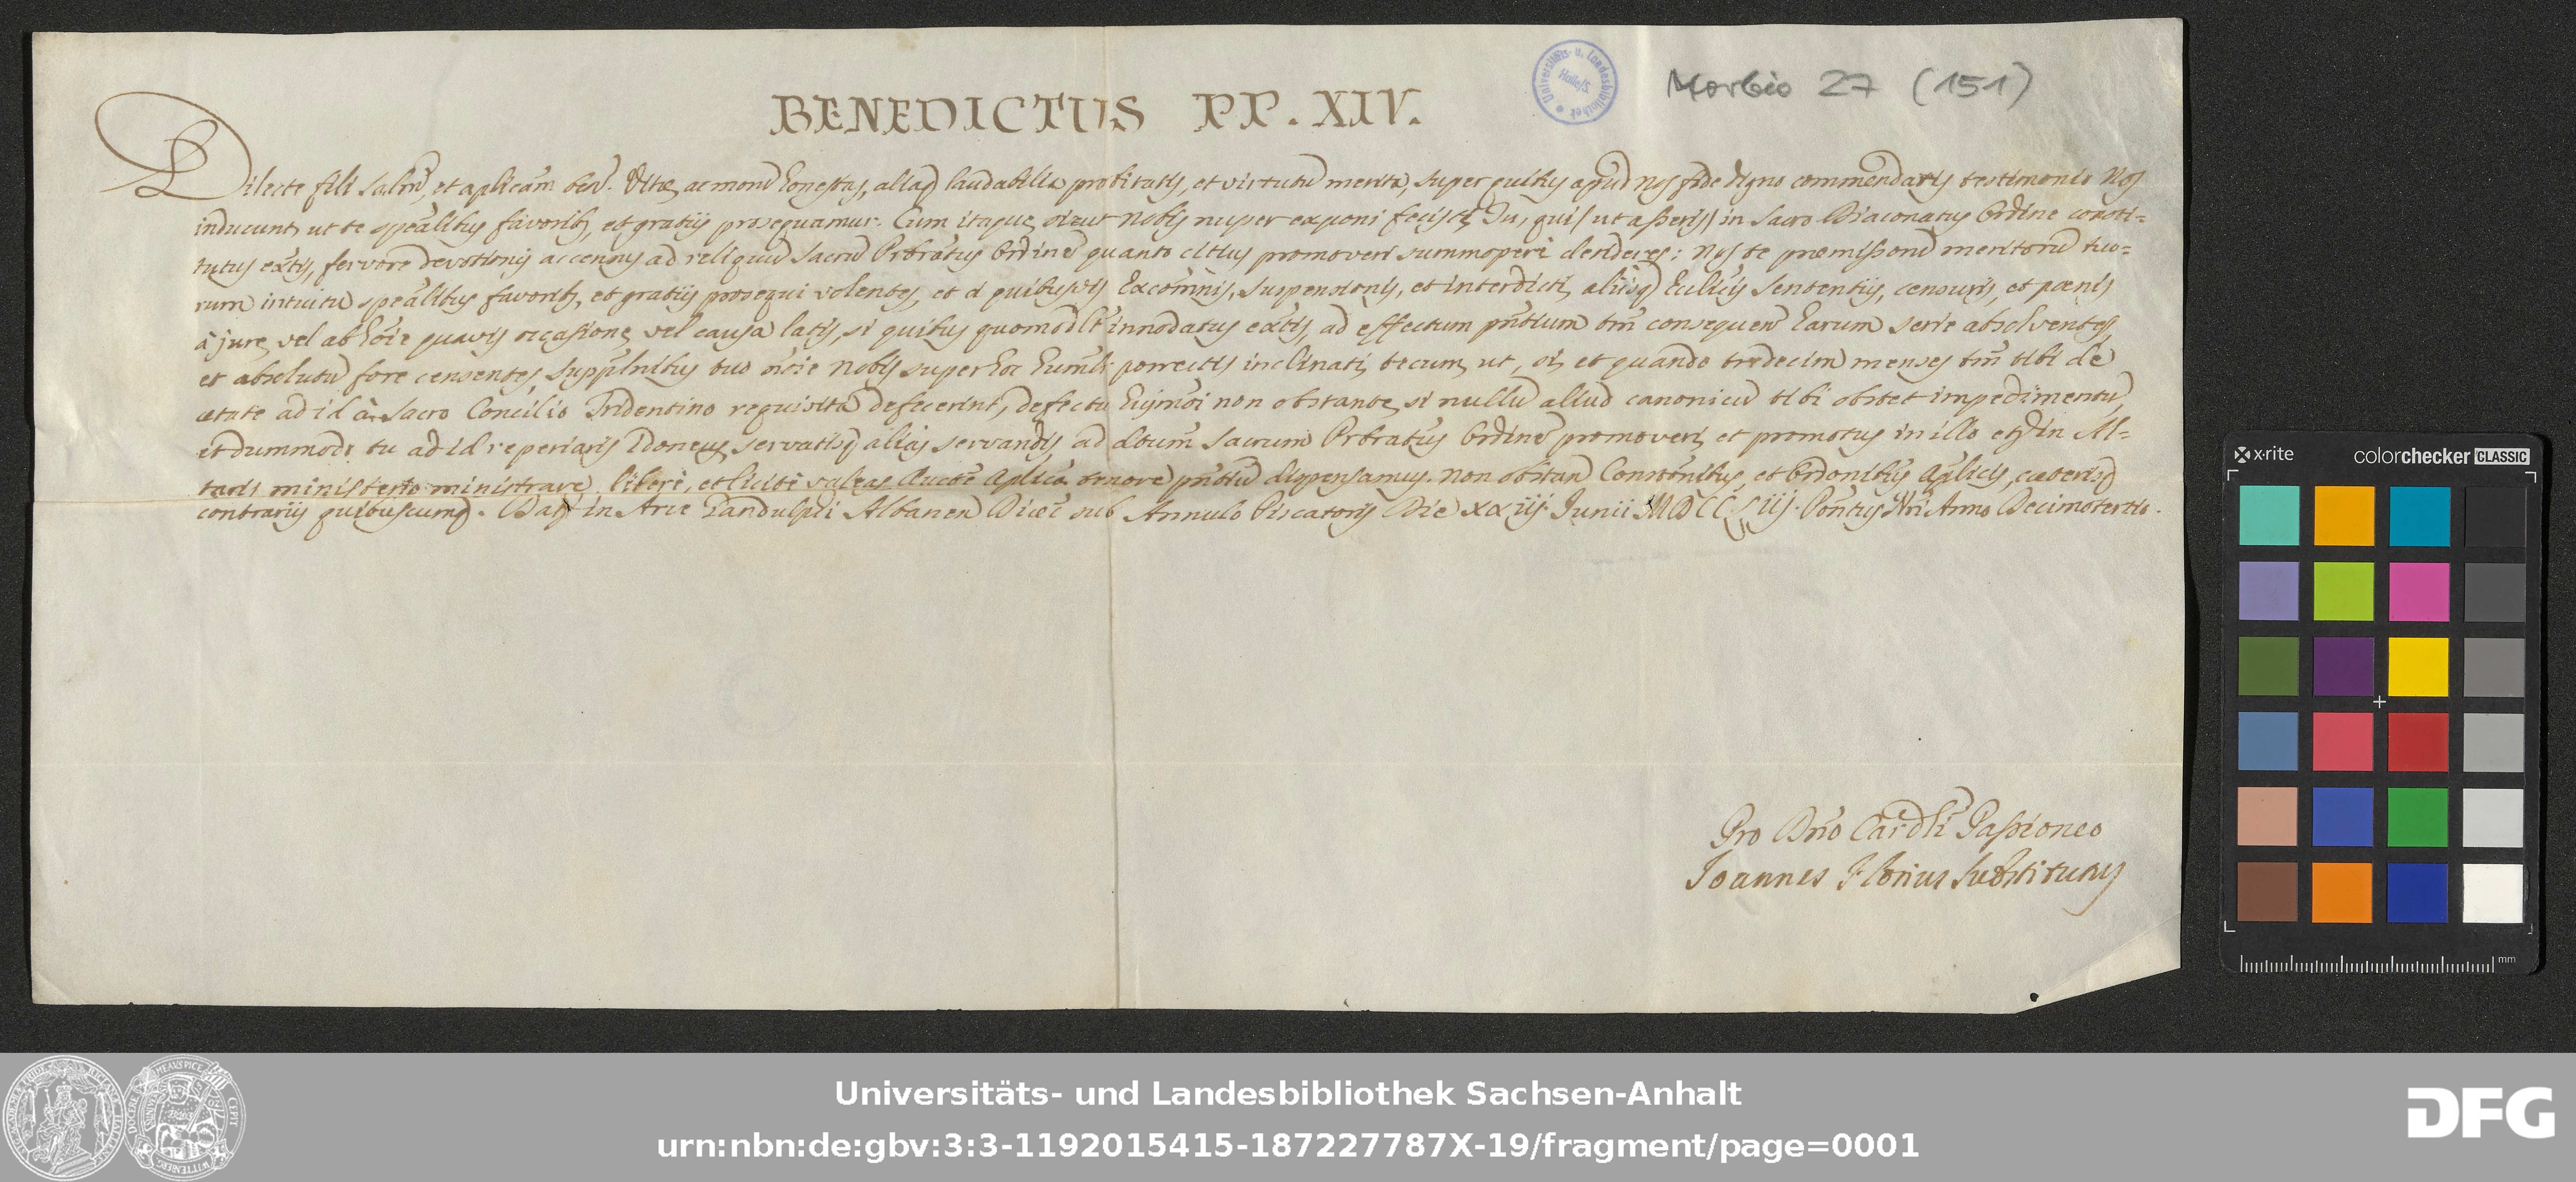 BENEDICTUS PP. XIV.
Universitäts- u. Landesbibliothek Halle/S.
Morbio 27 (151)
Dilecte fili salm̃, et aplicam ben. Vitæ, ac morũ honestas, aliaq laudabilia probitatis, et virtutũ merita, super quibus apud Nos fide digno commendaris testimonio Nos
inducunt, ut te speãlibus favorib, et gratijs prosequamur. Cum itaque, sicut Nobis nuper exponi fecisti, Tu, qui (ut asseris) in Sacro Diaconatus Ordine consti=
tutus exts, fervore devotionis accensus ad reliquũ Sacrũ Prbratus Ordinẽ quanto citius promoveri summoperè desideres: Nos te præmissorũ meritorũ tuo=
rum intuitu speãlibus favorib, et gratijs prosequi volentes, et à quibusvis Excom̃nis, suspensionis, et interdicti, alijsq Ecclicis Sententijs, censuris, et pœnis
à jure, vel ab hoĩe quavis occasione, vel causa latis, si quibus quomodlt innodatus extis, ad effectum pñtium tm̃ consequen harum serie absolventes,
et absolutũ fore censentes, supplñibus tuo nõie Nobis super hoc humilr porrectis inclinati, tecum, ut, si, et quando tredecim menses tm̃ tibi de
ætate ad id à Sacro Concilio Tridentino requisita defecerint, defectu hujmõi non obstante, si nullũ aliud canonicũ tibi obstet impedimentũ,
et dummodo tu ad id reperiaris idoneus, servatisq alias servandis, ad dictum Sacrum Prbratus Ordinẽ promoveri, et promotus in illo etiã in Al=
taris ministerio ministrare, liberè, et licitè valeas Auctẽ Aplica tenore pñtiũ dispensamus. Non obstan Constonibus, et Ordonibus Aplicis, cæterisq
contrarijs quibuscumq. Dat in Arce Gandulphi Albanen Diœc sub Annulo Piscatoris Die xxiij Junii MDCCLIIJ. Pontus Nri Anno Decimotertio.
Pro Dño Cardli Passioneo
Joannes Florius Substitutus
x-rite
colorchecker CLASSIC
mm
Universitäts- und Landesbibliothek Sachsen-Anhalt
urn:nbn:de:gbv:3:3-1192015415-187227787X-19/fragment/page=0001
DFG